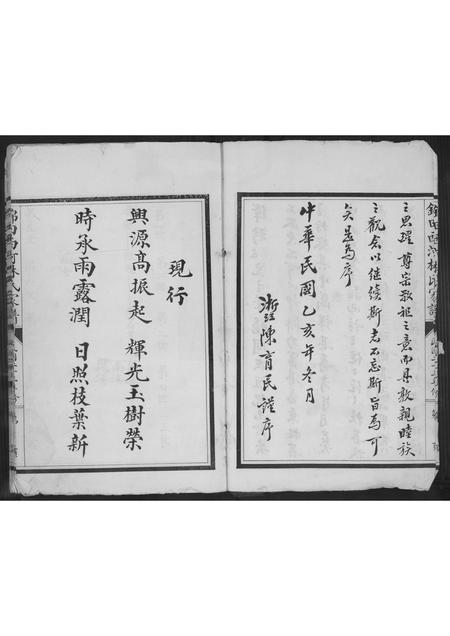 之思瑾尊宗敬祖之意而具敦親睦族
之觀念以継續斯者不忘斯旨為可
矣是為序
中華民國乙亥年冬月
浙江陳育民謹序
現行
興源高振起 輝光玉樹榮
時承雨露潤 日照枝葉新